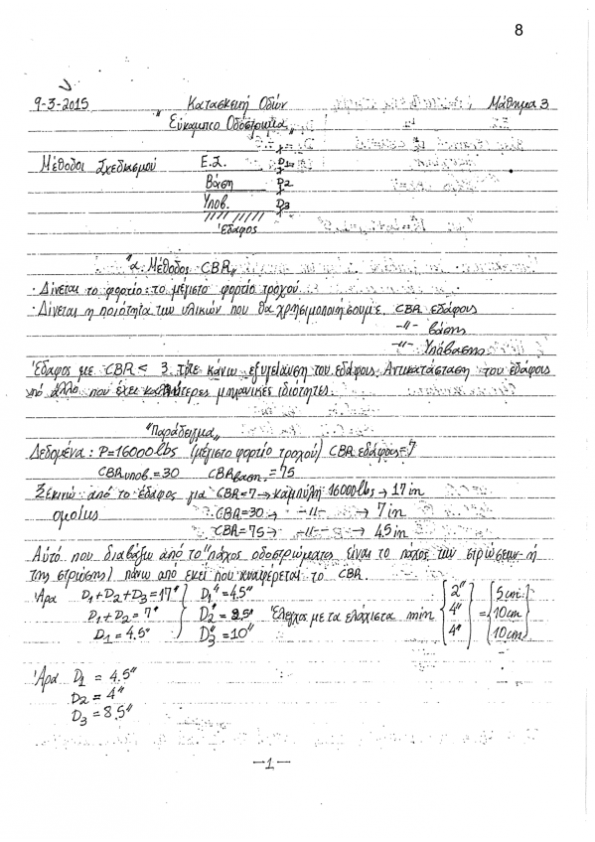 8
9-3-2015 Κατασκευή Οδών Μάθημα 3
"Εύκαμπτο Οδόστρωμα"
Μέθοδοι Σχεδιασμού Ε.Σ. D1
Βάση D2
Υποβ. D3
Έδαφος
"α. Μέθοδος CBR"
· Δίνεται το φορτίο: το μέγιστο φορτίο τροχού
· Δίνεται η ποιότητα των υλικών που θα χρησιμοποιήσουμε CBR εδάφους
-"- βάσης
-"- Υπόβασης
Έδαφος με CBR < 3 τότε κάνω εξυγείανση του εδάφους. Αντικατάσταση του εδάφους
από άλλο που έχει καλύτερες μηχανικές ιδιότητες.
"Παράδειγμα"
Δεδομένα: P=16000lbs (μέγιστο φορτίο τροχού) CBR εδάφους=7
CBR υποβ.=30 CBR βαση.=75
Ξεκινώ από το έδαφος για CBR=7 → καμπύλη 16000lbs → 17in
ομοίως CBR=30 → -"- → 7in
CBR=75 → -"- → 4.5in
Αυτό που διαβάζω από το "πάχος οδοστρώματος" είναι το πάχος των στρώσεων (ή
της στρώσης) πάνω από εκεί που αναφέρεται το CBR.
Άρα D1+D2+D3=17" D1*=4.5" 2" 5cm
D1+D2=7" D2*=2.5" Έλεγχος με τα ελάχιστα min 4" = 10cm
D1=4.5" D3*=10" 4" 10cm
Άρα D1 = 4.5"
D2 = 4"
D3 = 8.5"
-1-